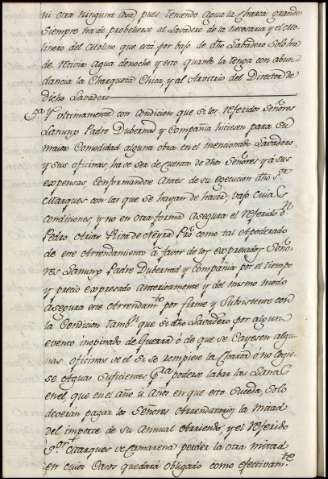 ni otra ninguna cosa pues teniendo agua la charca grande
siempre ha de proveherse al Lavadero de la necesaria y el Mo-
linero del Molino que está por bajo de dho Lavadero solo ha
de servirse agua de noche y esto quando la tenga con abun
dancia la Charqueta Chica, y al Arvitrio del Director de
dicho Lavadero
y ultimamente con condicion que si los referidos Señores
Larrup Padre Dubernad y Compañia hiciesen para su
maior Comodidad alguna obra en el mencionado Lavadero,
y sus oficinas, ha de ser de cuenta de dhos Señores y a sus
expensas conformandose antes de su egecucion dho Sor
Marques con las que se hayan de hacer, vajo cuias
condiciones y no en otra forma asegura el referido Dn
Pedro como tal apoderado
de este Arrendamiento à favor de los expresados Seño-
res Larrup Padre Dubernad y Compañia por el tiempo
y precio expresado anteriormente y del mismo modo
asegura este Arrendamto por firme y subsistente con
la Condicion tambn que si dho Lavadero por algun
evento inopinado de Guerra ó de que se cayesen algu-
nas oficinas de el si se rompiese la Charca o no aqui
se aguas suficientes pra poderse labar las Lanas
en el, que en el año ú Años en que esto suceda, solo
deveran pagar los Señores Arrendatarios la mitad
del importe de su Annual Arriendo, y el referido
Sor Marques de Camarena perder la otra mitad
en cuios Casos quedará obligado como efectivamte